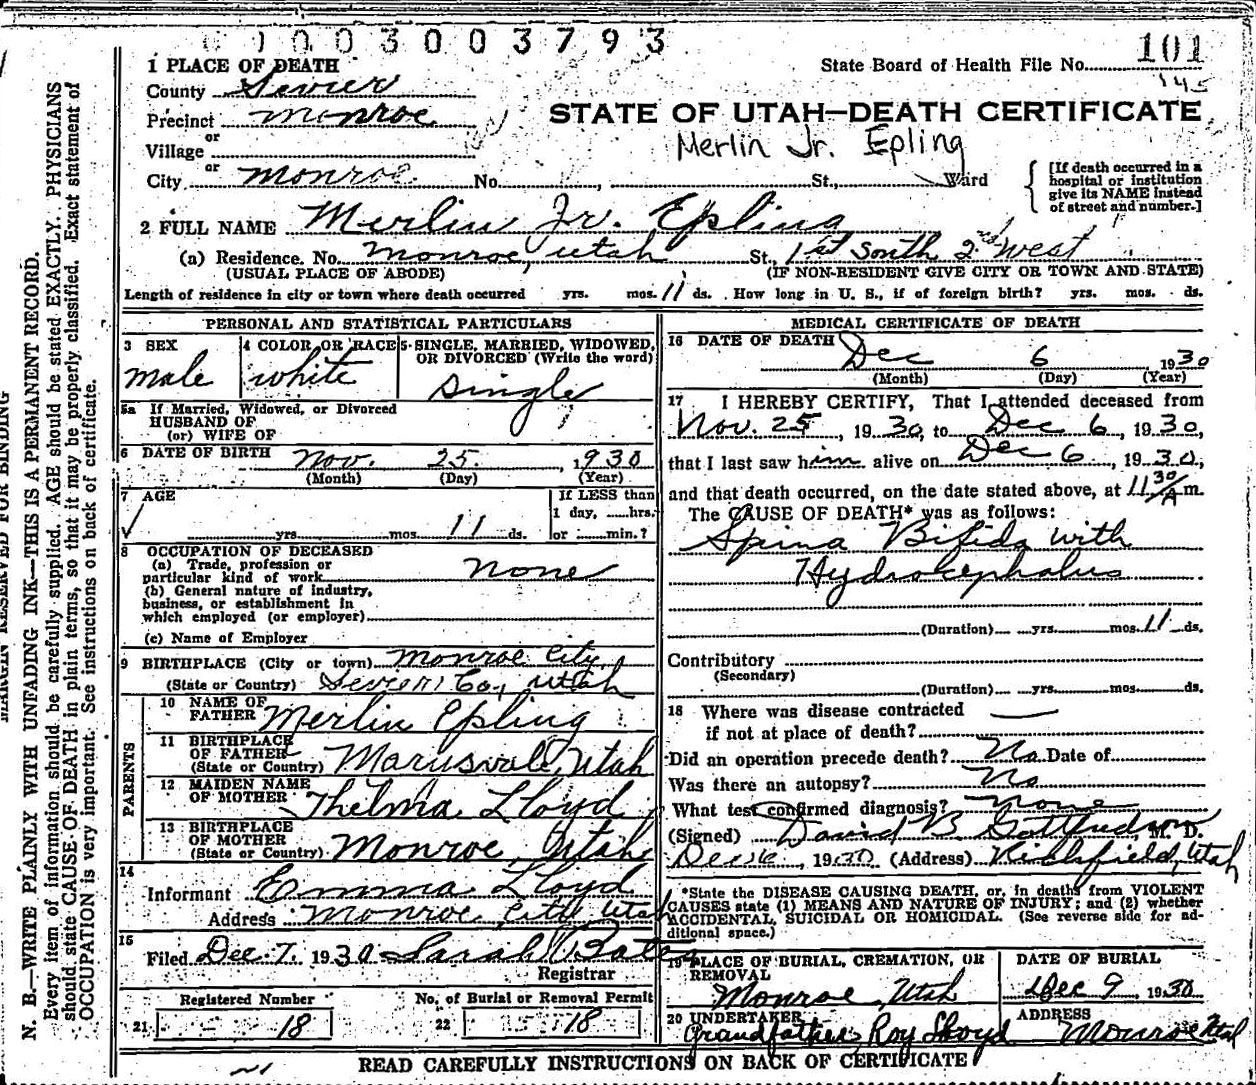 0 1 0 0 3 0 0 3 7 9 3
101
State Board of Health File No.
145
STATE OF UTAH—DEATH CERTIFICATE
Merlin Jr. Epling
1 PLACE OF DEATH
County Sevier
Precinct Monroe
or
Village
or
City Monroe No. , St., Ward
[If death occurred in a
hospital or institution
give its NAME instead
of street and number.]
2 FULL NAME Merlin Jr. Epling
(a) Residence. No. Monroe, Utah St., 1st South 2nd West
(USUAL PLACE OF ABODE) (IF NON-RESIDENT GIVE CITY OR TOWN AND STATE)
Length of residence in city or town where death occurred yrs. mos. 11 ds. How long in U. S., if of foreign birth? yrs. mos. ds.
PERSONAL AND STATISTICAL PARTICULARS
3 SEX
Male
4 COLOR OR RACE
white
5 SINGLE, MARRIED, WIDOWED,
OR DIVORCED (Write the word)
Single
5a If Married, Widowed, or Divorced
HUSBAND OF
(or) WIFE OF
6 DATE OF BIRTH Nov. 25. , 1930
(Month) (Day) (Year)
7 AGE
yrs mos. 11 ds.
If LESS than
1 day, hrs.
or min.?
8 OCCUPATION OF DECEASED
(a) Trade, profession or
particular kind of work None
(b) General nature of industry,
business, or establishment in
which employed (or employer)
(c) Name of Employer
9 BIRTHPLACE (City or town) Monroe City
(State or Country) Sevier Co., Utah
PARENTS
10 NAME OF
FATHER Merlin Epling
11 BIRTHPLACE
OF FATHER
(State or Country) Marysvale, Utah
12 MAIDEN NAME
OF MOTHER Thelma Lloyd
13 BIRTHPLACE
OF MOTHER
(State or Country) Monroe, Utah
14
Informant Emma Lloyd
Address Monroe City Utah
15
Filed Dec. 7, 1930 Sarah Bates
Registrar
Registered Number
21 18
No. of Burial or Removal Permit
22 18
MEDICAL CERTIFICATE OF DEATH
16 DATE OF DEATH
Dec 6 1930
(Month) (Day) (Year)
17 I HEREBY CERTIFY, That I attended deceased from
Nov. 25 , 1930, to Dec 6, 1930,
that I last saw him alive on Dec 6, 1930,
and that death occurred, on the date stated above, at 11 30/A m.
The CAUSE OF DEATH* was as follows:
Spina Bifida with
Hydrocephalus
(Duration) yrs. mos. 11 ds.
Contributory
(Secondary)
(Duration) yrs. mos. ds.
18 Where was disease contracted
if not at place of death?
Did an operation precede death? No Date of
Was there an autopsy? No
What test confirmed diagnosis? None
(Signed) David B Gottfredson, M. D.
Dec 6, 1930 (Address) Richfield, Utah
*State the DISEASE CAUSING DEATH, or, in deaths from VIOLENT
CAUSES state (1) MEANS AND NATURE OF INJURY; and (2) whether
ACCIDENTAL, SUICIDAL OR HOMICIDAL. (See reverse side for ad-
ditional space.)
19 PLACE OF BURIAL, CREMATION, OR
REMOVAL
Monroe, Utah
DATE OF BURIAL
Dec 9, 1930
20 UNDERTAKER
Grandfather Roy Lloyd
ADDRESS
Monroe Utah
READ CAREFULLY INSTRUCTIONS ON BACK OF CERTIFICATE
MARGIN RESERVED FOR BINDING
N. B.—WRITE PLAINLY WITH UNFADING INK—THIS IS A PERMANENT RECORD.
Every item of information should be carefully supplied. AGE should be stated EXACTLY. PHYSICIANS
should state CAUSE OF DEATH in plain terms, so that it may be properly classified. Exact statement of
OCCUPATION is very important. See instructions on back of certificate.